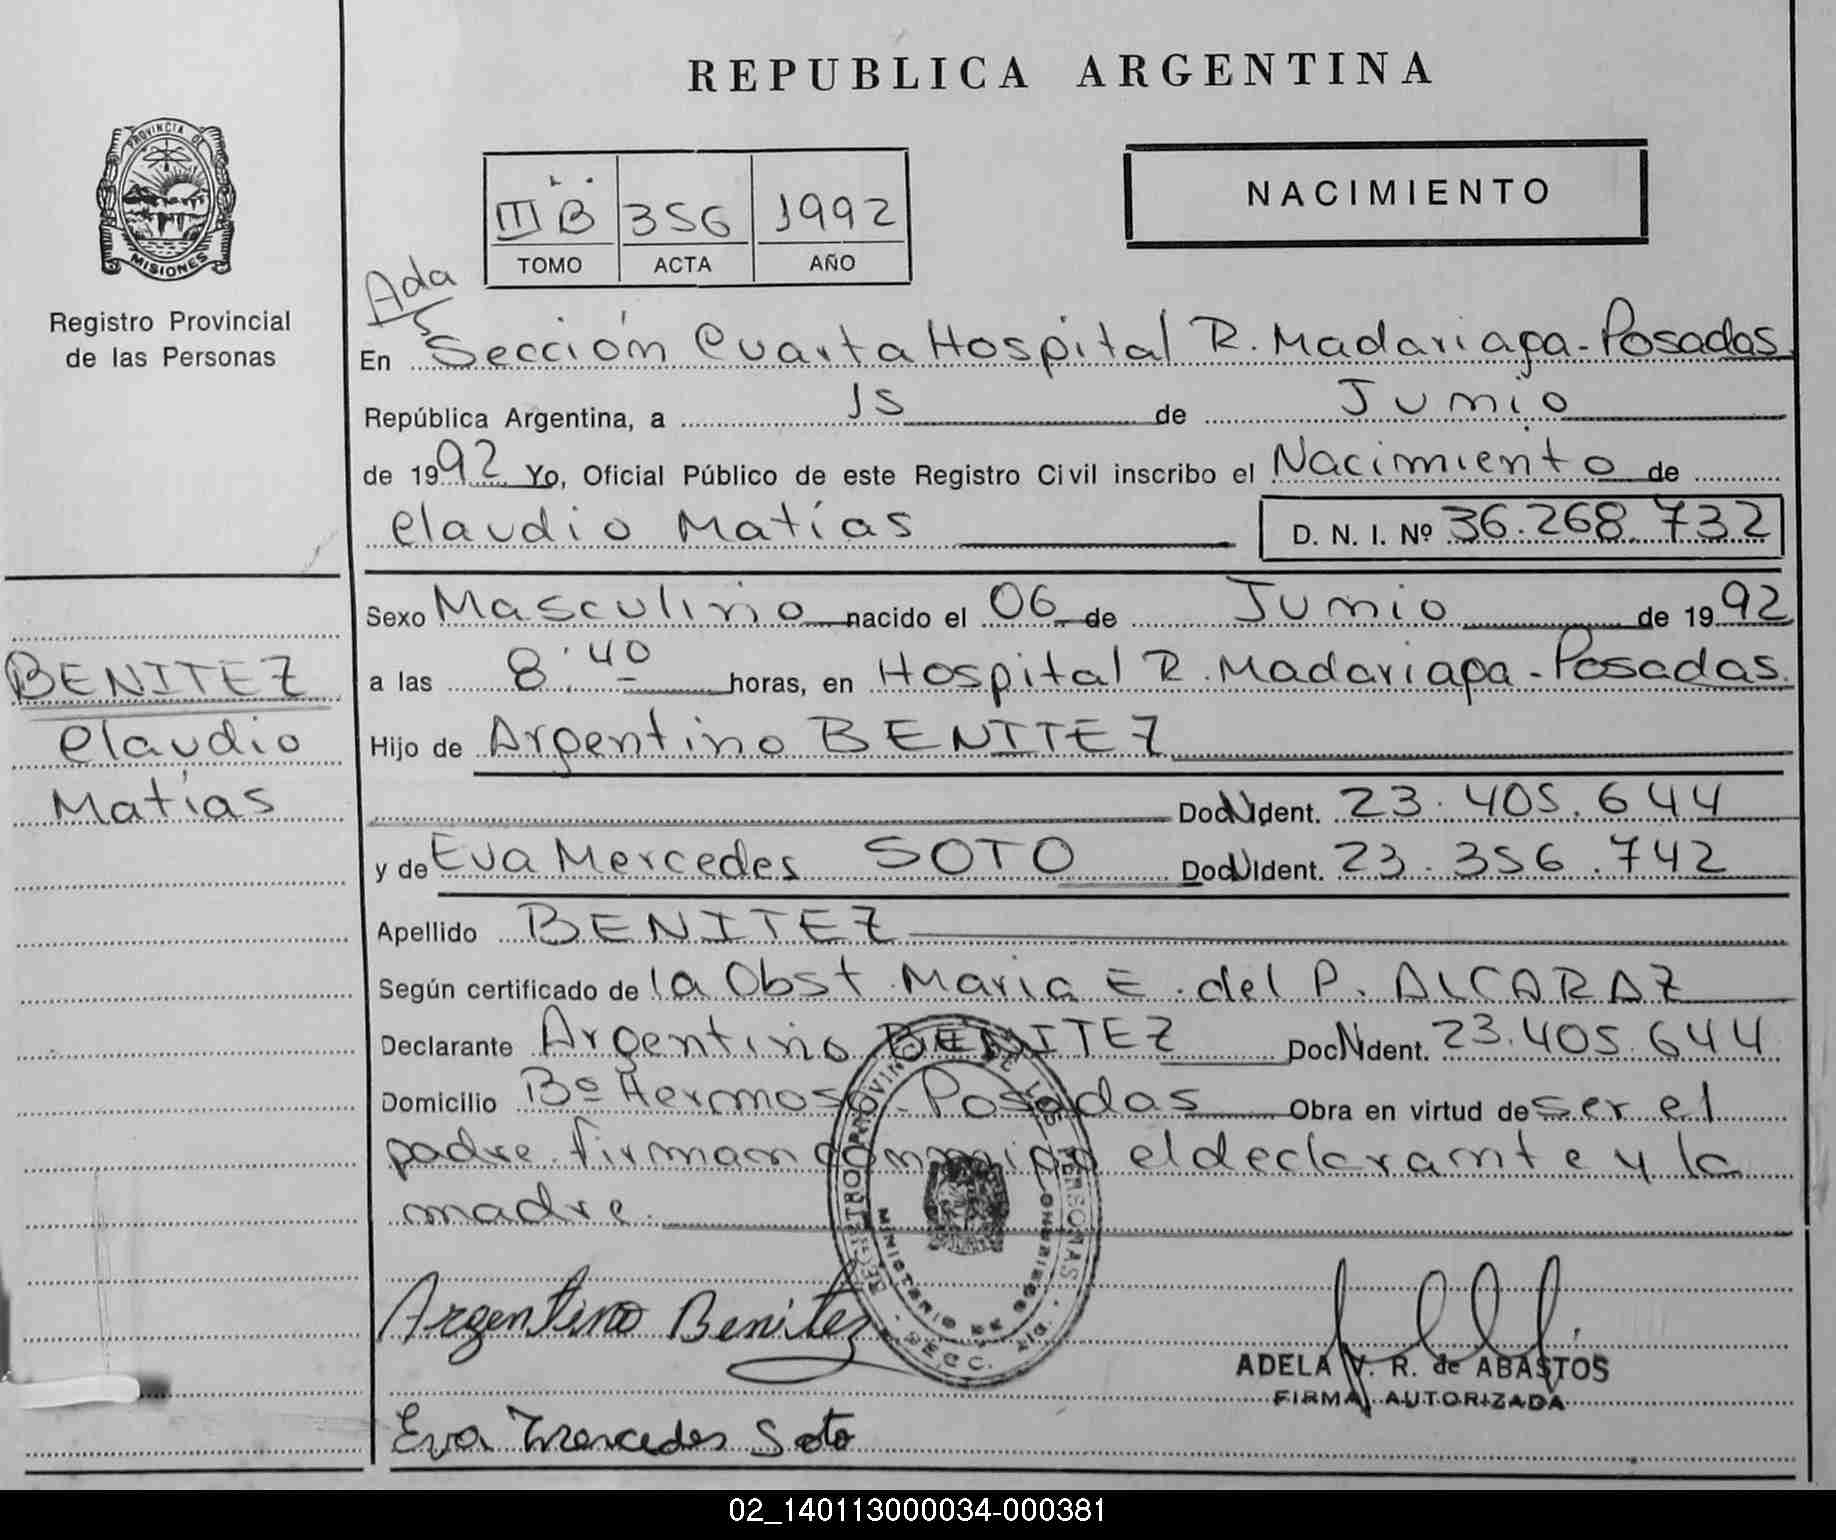 REPUBLICA ARGENTINA
PROVINCIA DE
MISIONES
Registro Provincial
de las Personas
III B 356 1992
TOMO ACTA AÑO
NACIMIENTO
Ada
En Sección Cuarta Hospital R. Madariaga - Posadas
República Argentina, a 15 de Junio
de 1992 Yo, Oficial Público de este Registro Civil inscribo el Nacimiento de
Claudio Matías D. N. I. Nº 36.268.732
Sexo Masculino nacido el 06 de Junio de 1992
a las 8:40 horas, en Hospital R. Madariaga - Posadas.
Hijo de Argentino BENITEZ
Doc. Ident. 23.405.644
y de Eva Mercedes SOTO Doc. Ident. 23.356.742
Apellido BENITEZ
Según certificado de la Obst. Maria E. del P. ALCARAZ
Declarante Argentino BENITEZ Doc. Ident. 23.405.644
Domicilio Bº Hermoso - Posadas Obra en virtud de ser el
padre. firman conmigo el declarante y la
madre.
BENITEZ
Claudio
Matías
REGISTRO PROVINCIAL DE LAS PERSONAS
MINISTERIO DE GOBIERNO
SECC.
Argentino Benitez
ADELA V. R. de ABASTOS
FIRMA AUTORIZADA
Eva Mercedes Soto
02_140113000034-000381